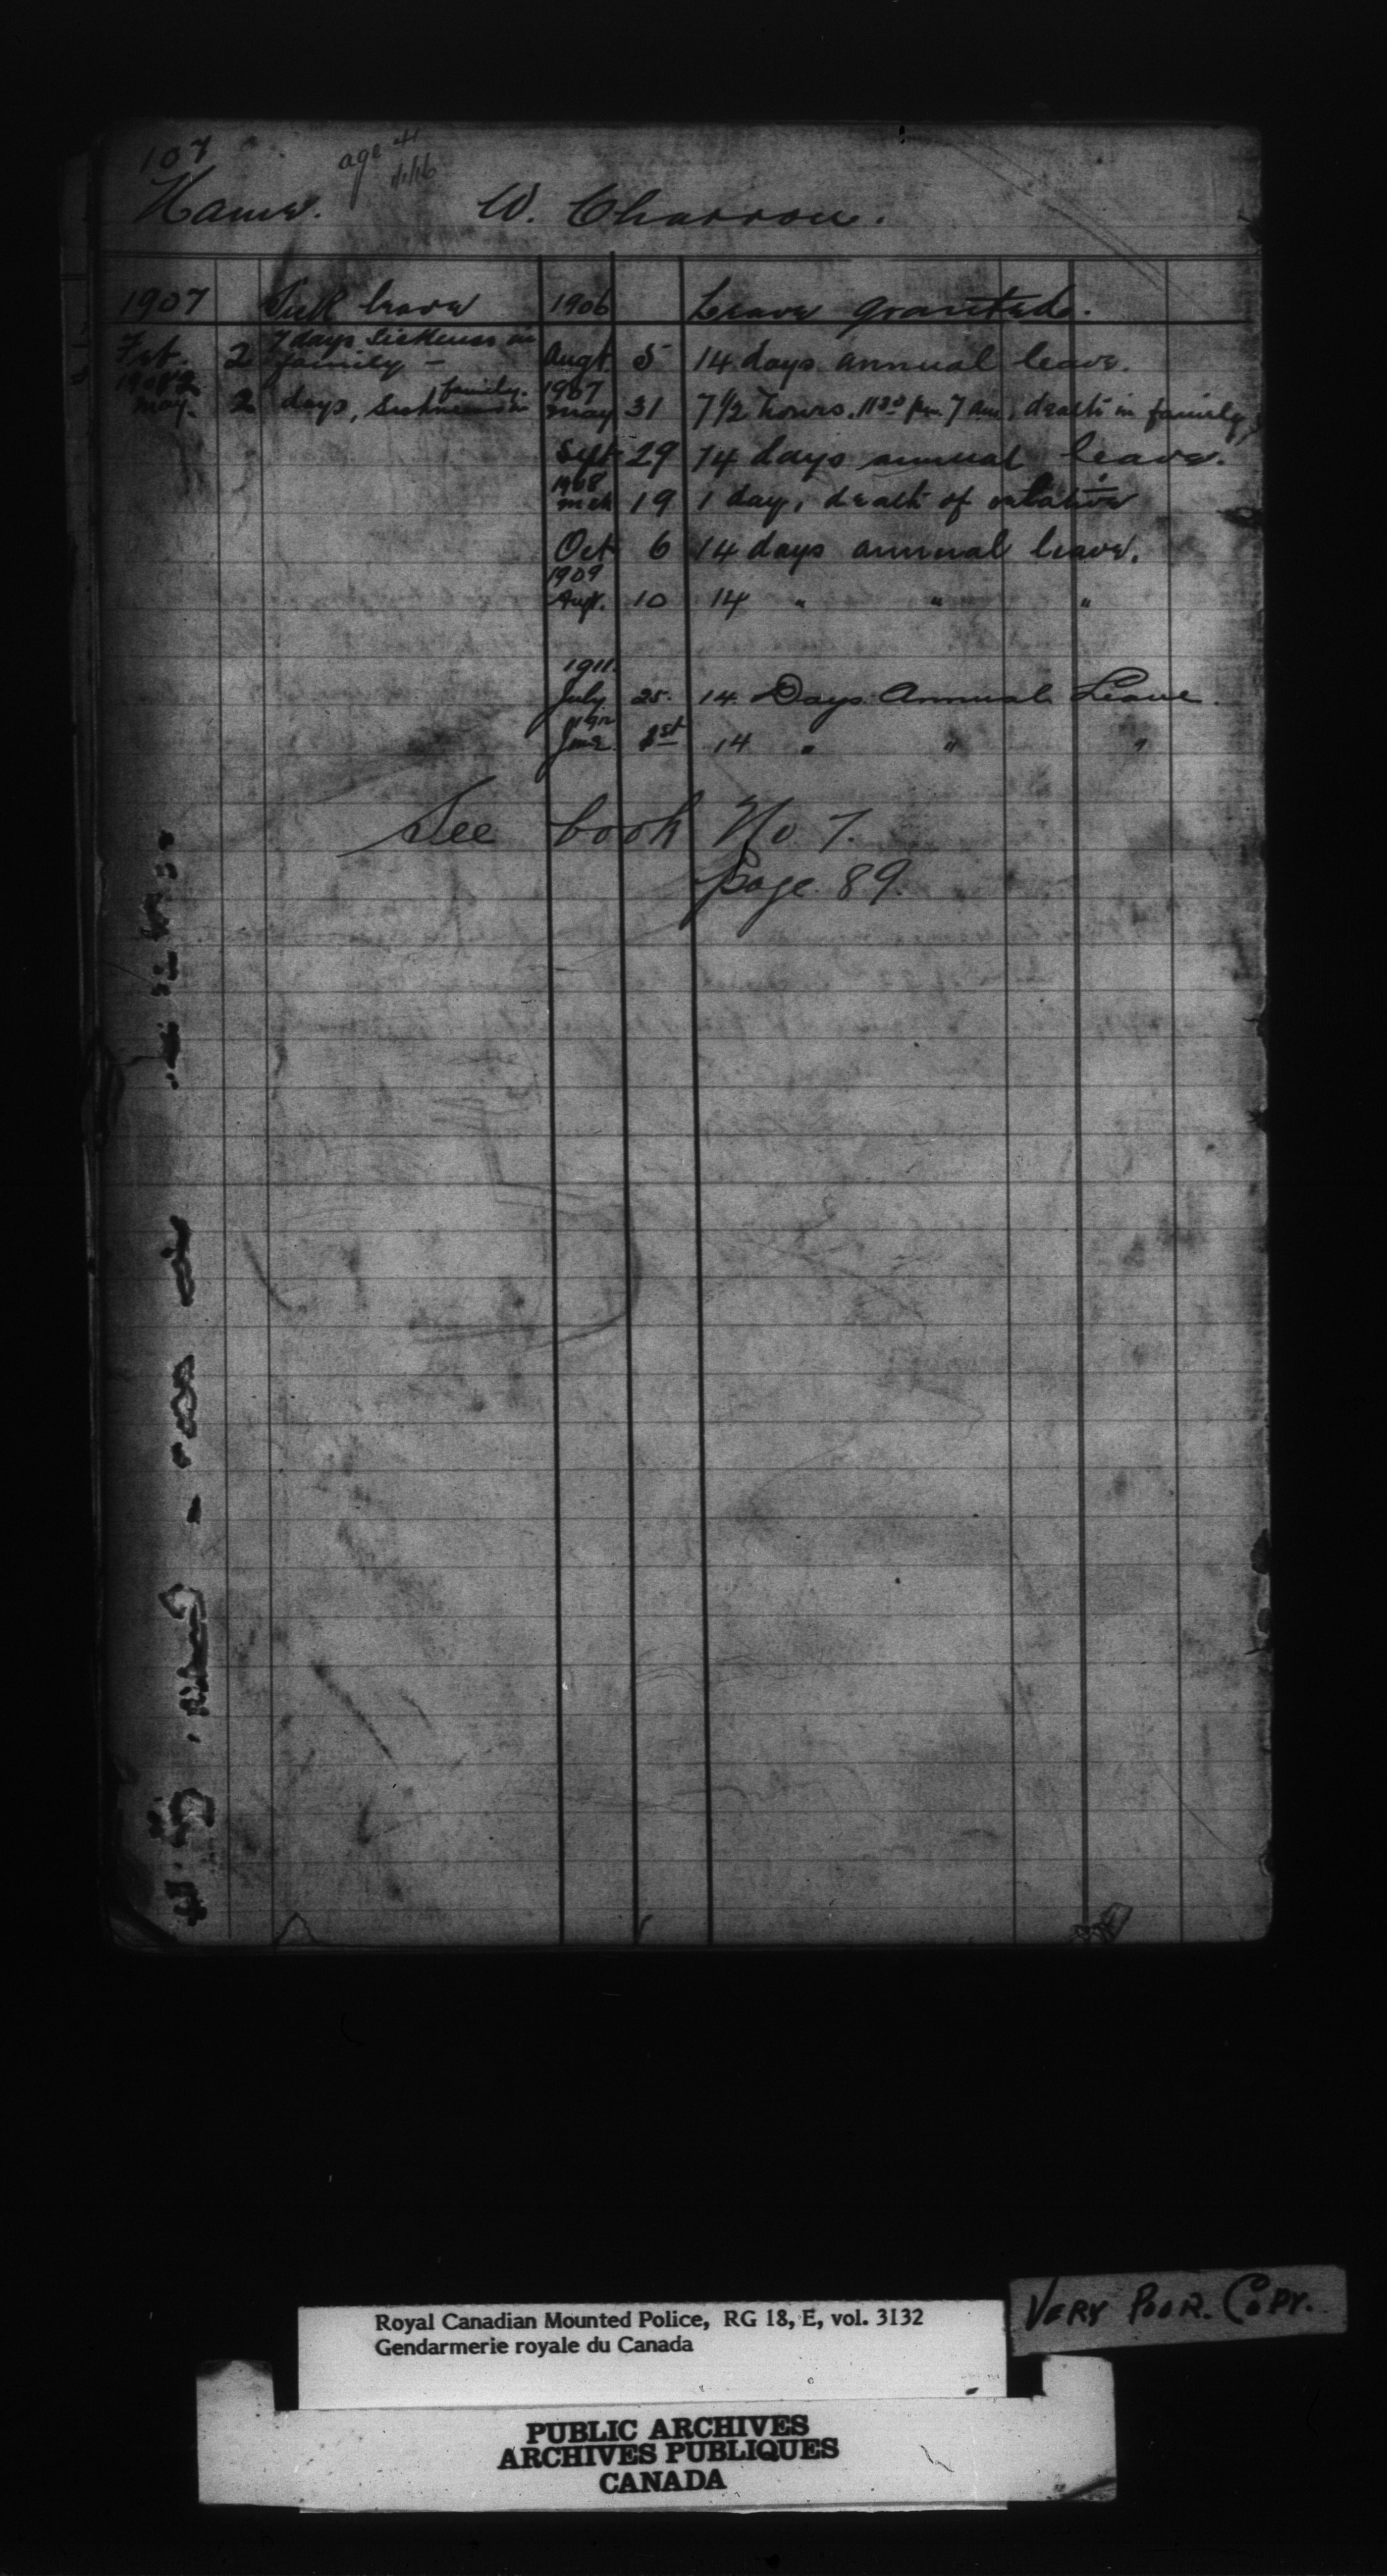 107 age 41
1/1/16
Name. W. Charron.
1907 Sick leave 1906 Leave granted.
Feb. 2 7 days Sickness in family - Augt. 5 14 days annual leave.
1908 May. 2 days, Sickness in family. 1907 May 31 7 1/2 hours. 11 30 p.m. 7 am, death in family,
Sept 29 14 days annual leave.
1908
Mch 19 1 day, death of relative
Oct 6 14 days annual leave.
1909
Augt. 10 14 " " "
1911.
July 25. 14. Days Annual Leave.
1912
June. 1st 14 " " "
See book No 7.
page 89.
VERY POOR. COPY.
Royal Canadian Mounted Police, RG 18, E, vol. 3132
Gendarmerie royale du Canada
PUBLIC ARCHIVES
ARCHIVES PUBLIQUES
CANADA